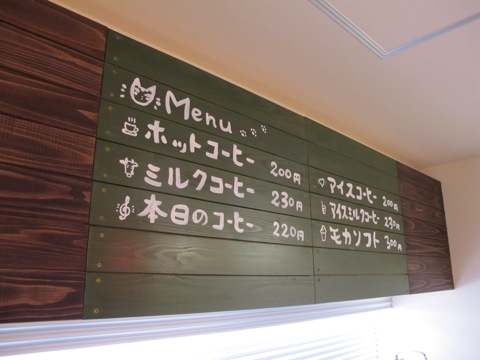 Menu
ホットコーヒー 200円
ミルクコーヒー 230円
本日のコーヒー 220円
アイスコーヒー 200円
アイスミルクコーヒー 230円
モカソフト 300円